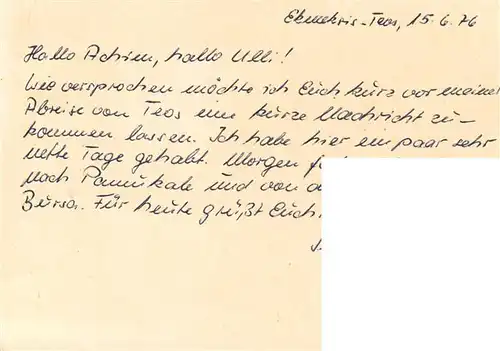 Ekmekris-Teos, 15.6.76
Hallo Achim, hallo Ulli!
Wie versprochen möchte ich Euch kurz vor meiner
Abreise von Teos eine kurze Nachricht zu-
kommen lassen. Ich habe hier ein paar sehr
nette Tage gehabt. Morgen
nach Pamukale und von
Bursa. Für heute grüßt Euch